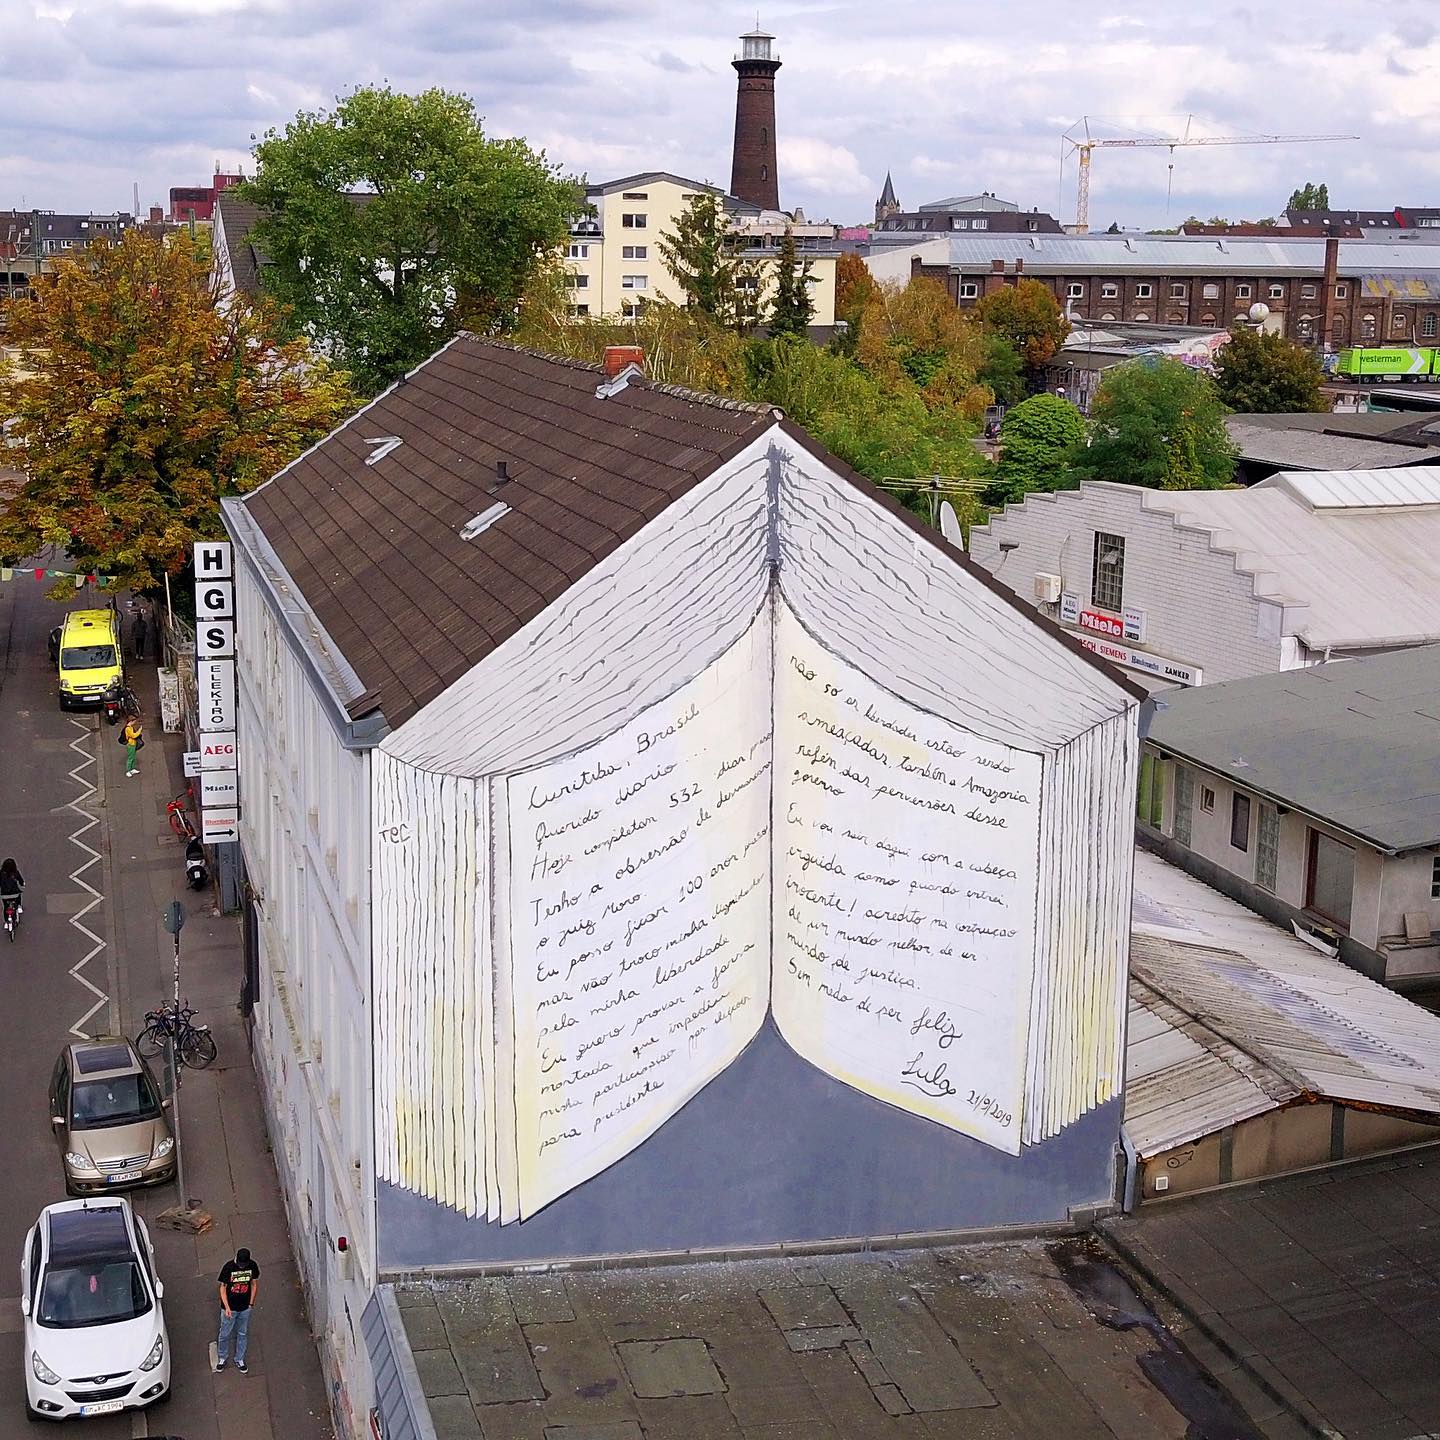 westerman
HGS
ELEKTRO
AEG
Miele
Miele
SIEMENS
ZANKER
TEC
Curitiba, Brasil
Querido diario...
Hoje completan 532 dias preso
Tenho a obsessão de desmascarar
o juiz Moro.
Eu posso ficar 100 anos preso
mas não troco minha dignidade
pela minha liberdade
Eu quero provar a farsa
montada que impediu
minha participação nas eleiçoes
para presidente
não so as liberdades estão sendo
ameaçadas, também a Amazonia
refén das perversões desse
governo
Eu vou sair daqui com a cabeça
erguida como quando entrei,
inocente! acredito na contruçao
de un mundo melhor, de un
mundo de justiça.
Sem medo de ser feliz
Lula 21/9/2019